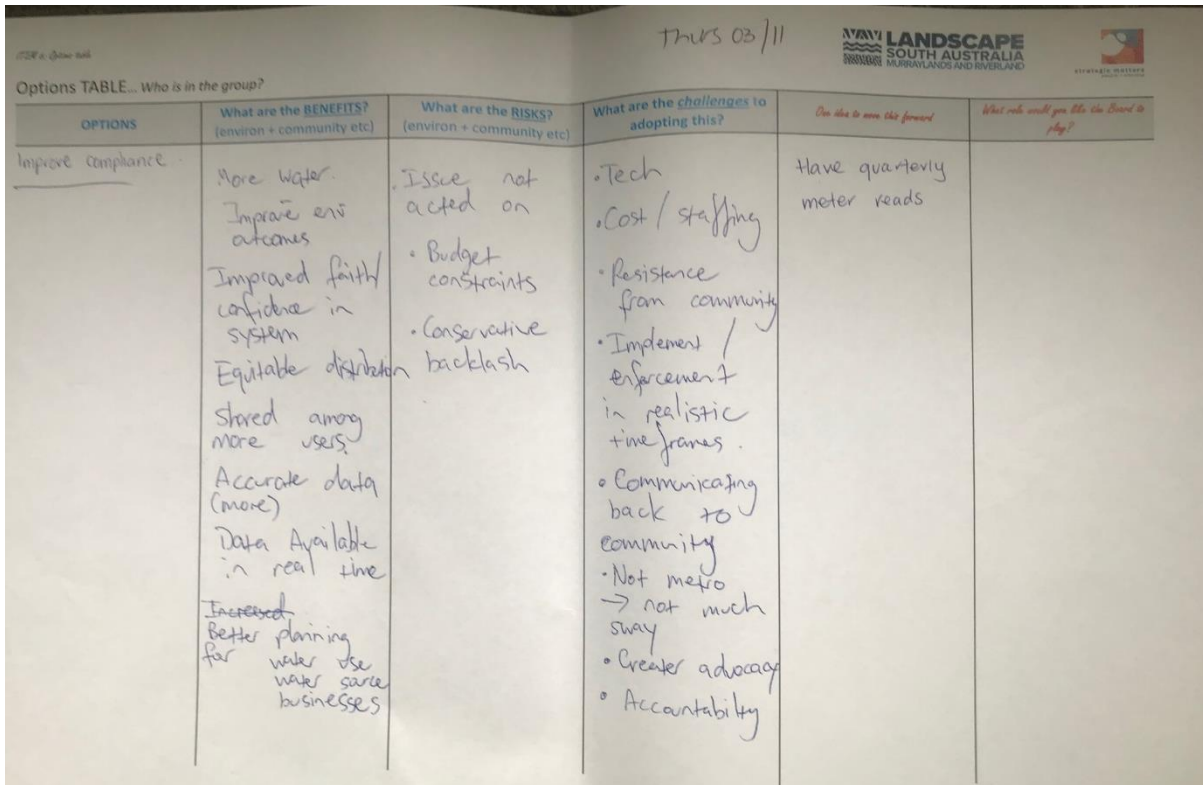 Thurs 03/11
ITEM 6: Options table
LANDSCAPE
SOUTH AUSTRALIA
MURRAYLANDS AND RIVERLAND
strategic matters
Options TABLE... Who is in the group?
OPTIONS
What are the BENEFITS?
(environ + community etc)
What are the RISKS?
(environ + community etc)
What are the challenges to
adopting this?
One idea to move this forward
What role would you like the Board to
play?
Improve compliance.
More water.
Improve env
outcomes
Improved faith/
confidence in
system
Equitable distribution
Shared among
more users.
Accurate data
(more)
Data Available
in real time
Increased
Better planning
for water use
water source
businesses
. Issue not
acted on
• Budget
constraints
• Conservative
backlash
• Tech
• Cost / staffing
• Resistance
from community
• Implement /
enforcement
in realistic
timeframes.
• Communicating
back to
community
• Not metro
→ not much
sway
• Greater advocacy
• Accountability
Have quarterly
meter reads